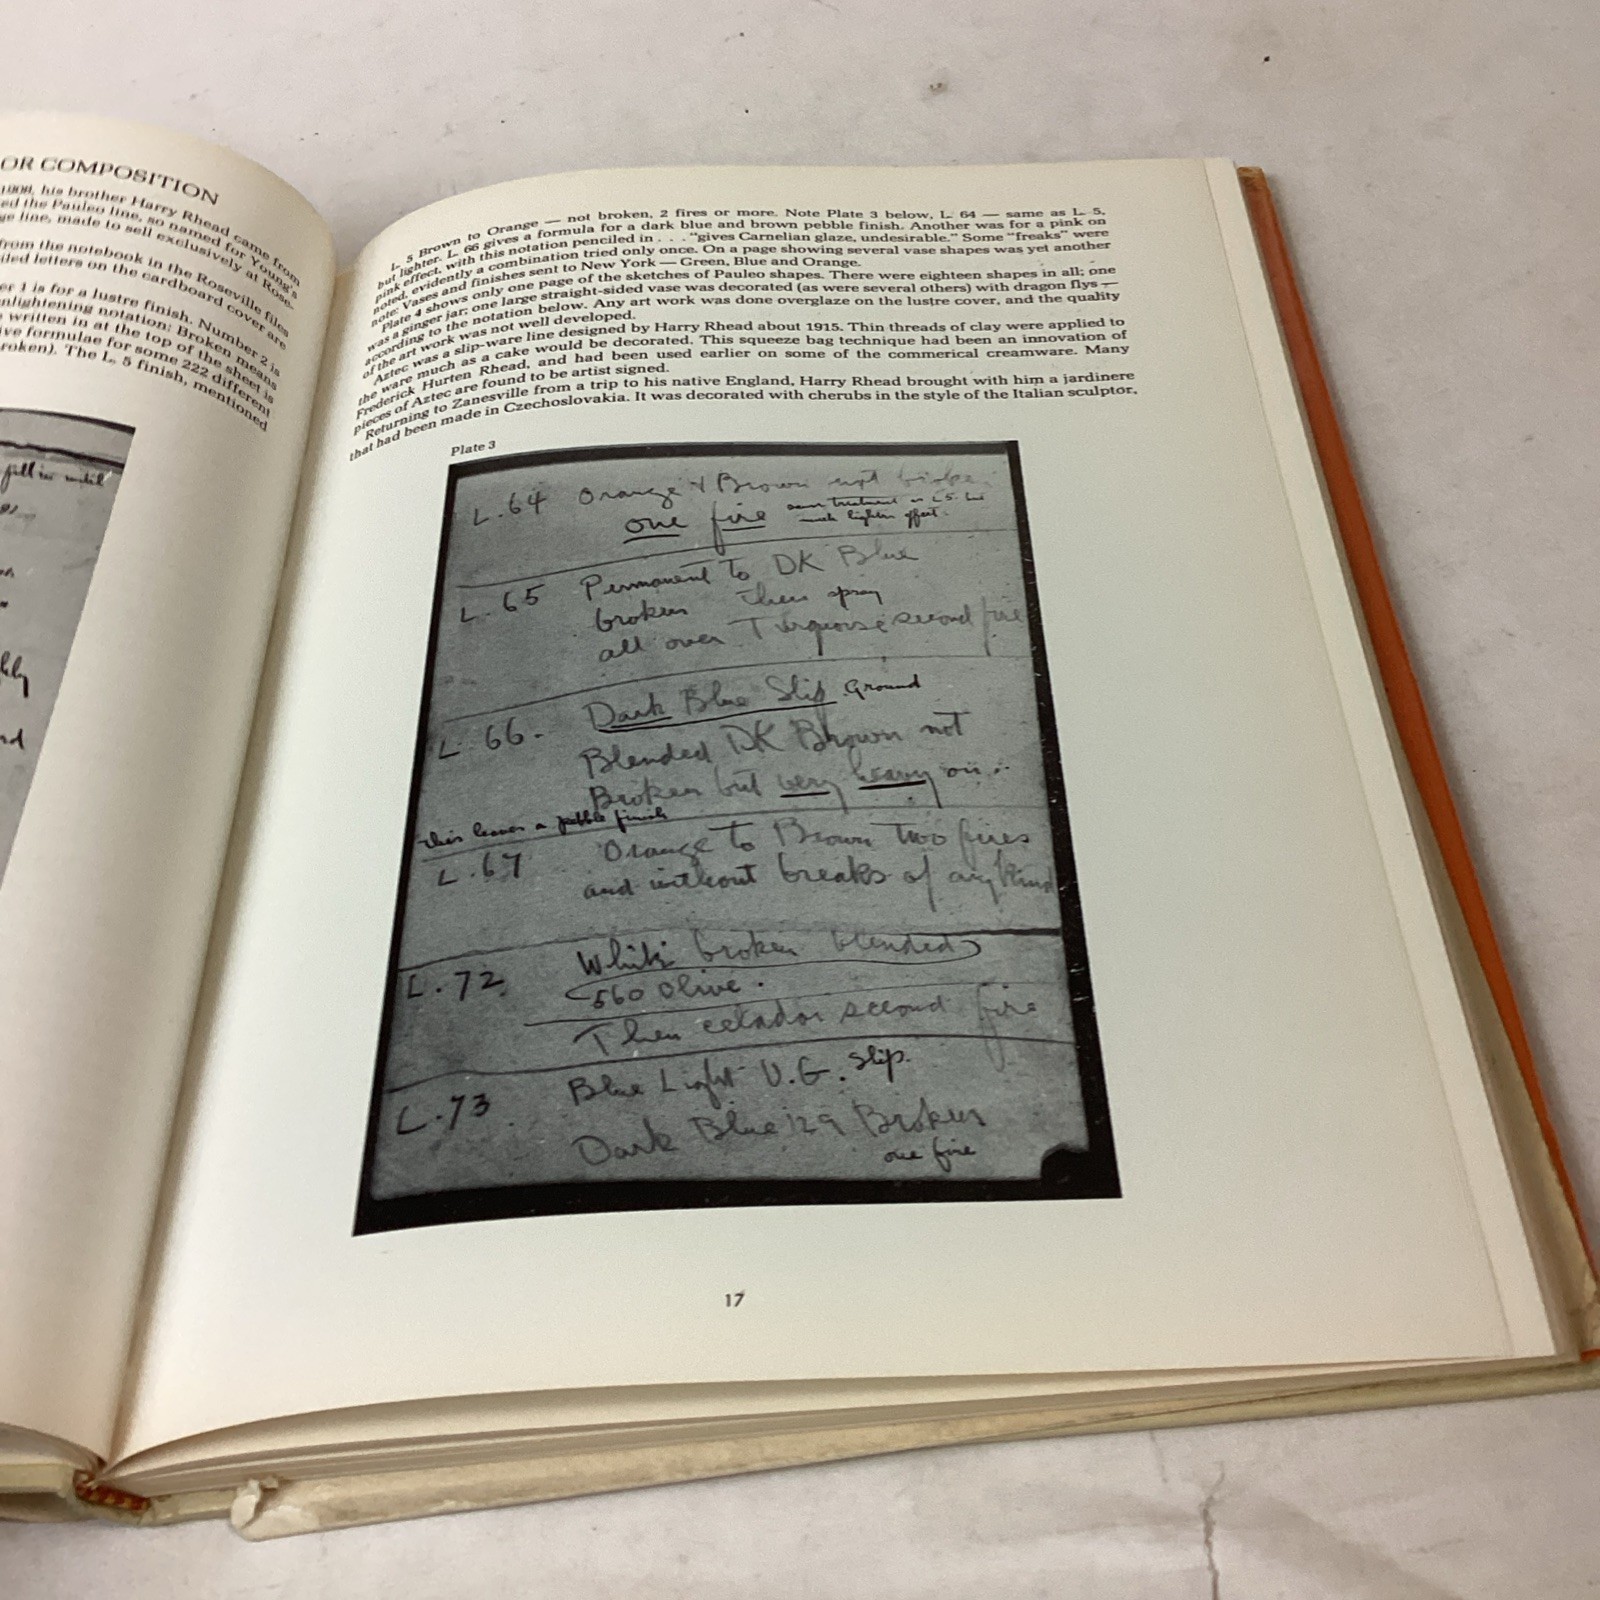 OR COMPOSITION
1908, his brother Harry Rhead came from
ed the Pauleo line, so named for Young's
ge line, made to sell exclusively at Rose-
from the notebook in the Roseville files
iled letters on the cardboard cover are
er 1 is for a lustre finish. Number 2 is
nlightening notation: Broken means
written in at the top of the sheet is
ive formulae for some 222 different
roken). The L. 5 finish, mentioned
fill in until
L. 5 Brown to Orange — not broken, 2 fires or more. Note Plate 3 below, L. 64 — same as L. 5,
but lighter. L. 66 gives a formula for a dark blue and brown pebble finish. Another was for a pink on
pink effect, with this notation penciled in . . . "gives Carnelian glaze, undesirable." Some "freaks" were
noted, evidently a combination tried only once. On a page showing several vase shapes was yet another
note: Vases and finishes sent to New York — Green, Blue and Orange.
Plate 4 shows only one page of the sketches of Pauleo shapes. There were eighteen shapes in all; one
was a ginger jar; one large straight-sided vase was decorated (as were several others) with dragon flys —
according to the notation below. Any art work was done overglaze on the lustre cover, and the quality
of the art work was not well developed.
Aztec was a slip-ware line designed by Harry Rhead about 1915. Thin threads of clay were applied to
the ware much as a cake would be decorated. This squeeze bag technique had been an innovation of
Frederick Hurten Rhead, and had been used earlier on some of the commerical creamware. Many
pieces of Aztec are found to be artist signed.
Returning to Zanesville from a trip to his native England, Harry Rhead brought with him a jardinere
that had been made in Czechoslovakia. It was decorated with cherubs in the style of the Italian sculptor,
Plate 3
L. 64 Orange & Brown not broke
one fire same treatment as L5. but
much lighter effect.
L. 65 Permanent to DK Blue
broken then spray
all over Turquoise second fire
L. 66. Dark Blue Slip Ground
Blended DK Brown not
Broken but very heavy on
this leaves a pebble finish
L. 67 Orange to Brown two fires
and without breaks of any kind
L. 72 White broken blended
560 Olive.
Then celador second fire
L. 73 Blue Light U.G. slip.
Dark Blue 129 Broken
one fire
17